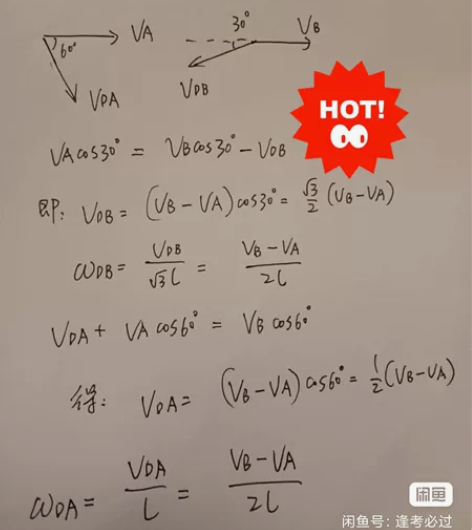 30°
V_A
V_B
60°
V_DA
V_DB
HOT!
V_A cos30° = V_B cos30° - V_DB
即: V_DB = (V_B - V_A) cos30° = √3/2 (V_B - V_A)
ω_DB = V_DB/√3 L = V_B - V_A/2L
V_DA + V_A cos60° = V_B cos60°
得: V_DA = (V_B - V_A) cos60° = 1/2 (V_B - V_A)
ω_DA = V_DA/L = V_B - V_A/2L
闲鱼
闲鱼号: 逢考必过